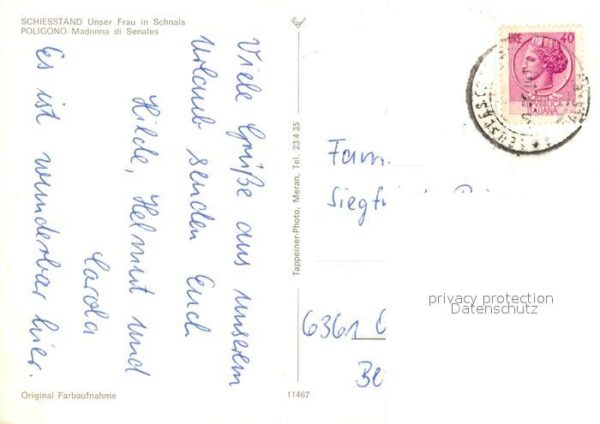 SCHIESSTAND Unser Frau in Schnals
POLIGONO Madonna di Senales
Viele Grüße aus unserem
Urlaub senden Euch
Hilde, Helmut und
Carola
Es ist wunderbar hier.
Original Farbaufnahme
Tappeiner-Photo, Meran, Tel. 23 4 35
11467
LIRE 40
REPUBBLICA
ITALIANA
Fam.
6361
privacy protection
Datenschutz